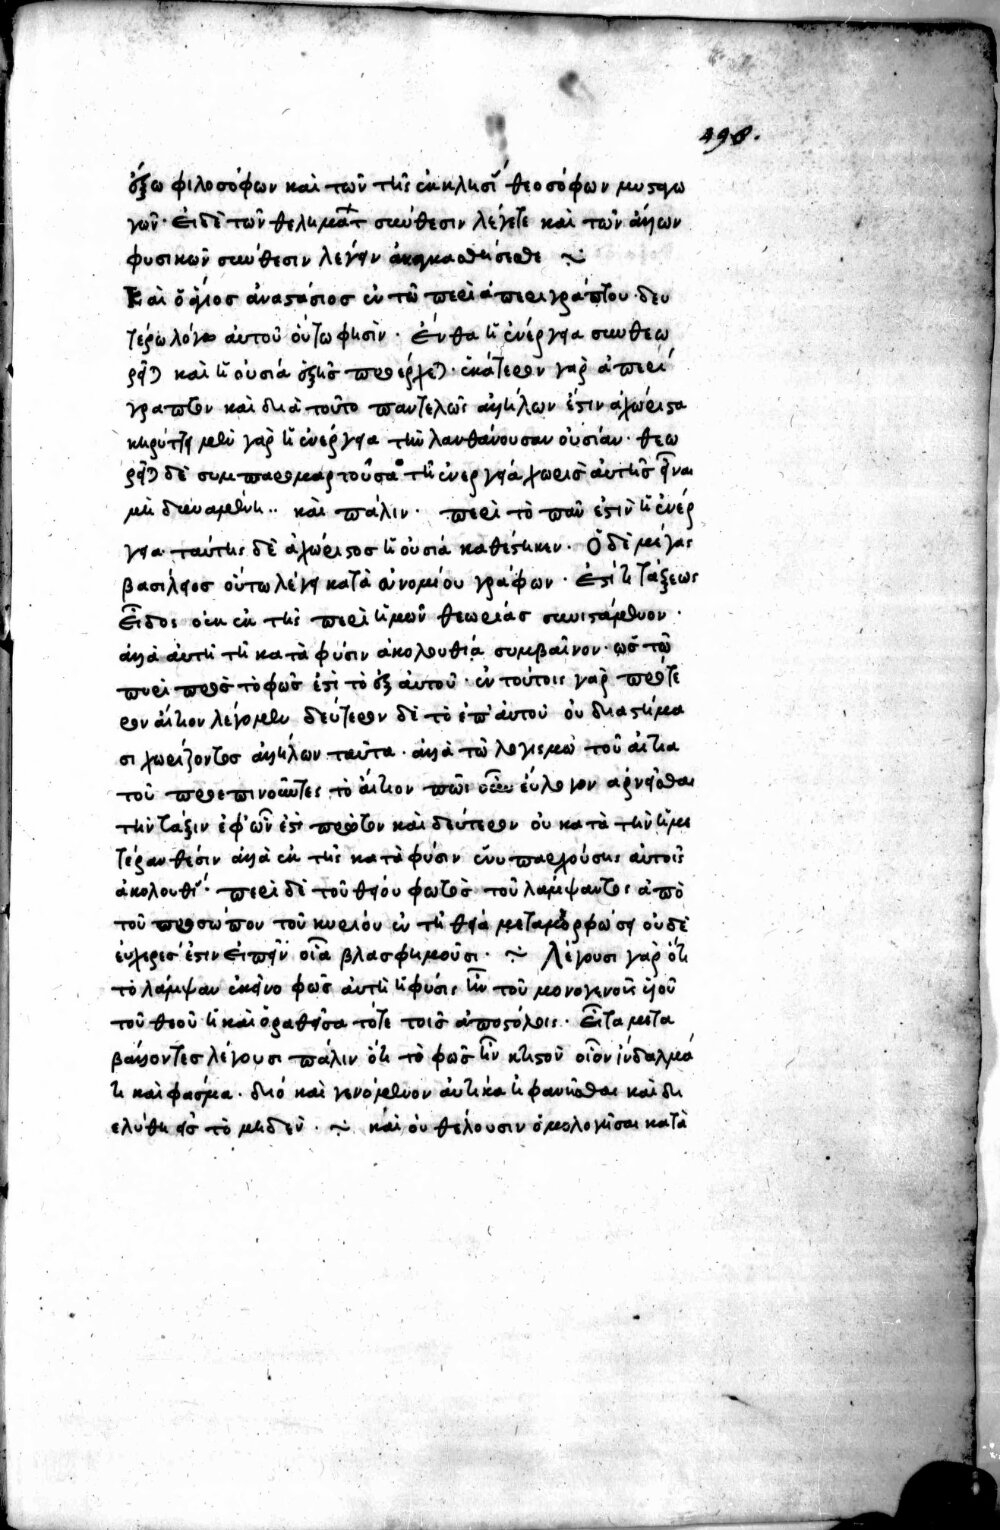 498.
ἔξω φιλοσόφων καὶ τῶν τῆς ἐκκλησί θεοσόφων μυσταγω
γῶν· εἰ δὲ τῶν θελημάτ σύνθεσιν λέγετε καὶ τῶν ἄλλων
φυσικῶν σύνθεσιν λέγειν ἀναγκασθήσεσθε ~
Καὶ ὁ ἅγιος ἀναστάσιος ἐν τῶ περὶ ἀπεριγράπτου δευ
τέρω λόγω αὐτοῦ οὕτω φησὶν· ἔνθα ἡ ἐνέργεια συνθεω
ρεῖται καὶ ἡ οὐσία ἐξ ἧς προέρχεται· ἑκάτερον γὰρ ἀπερί
γραπτον καὶ διὰ τοῦτο παντελῶς ἀλλήλων ἐστιν ἀχώριστα
κηρύττει μὲν γὰρ ἡ ἐνέργεια τὴν λανθάνουσαν οὐσίαν· θεω
ρεῖται δὲ συμπαρομαρτοῦσα τῆ ἐνεργεία χωρὶς αὐτῆς εἶναι
μὴ δυναμένη·· καὶ πάλιν· περὶ τὸ πᾶν ἐστὶν ἡ ἐνέρ
γεια ταύτης δὲ ἀχώριστος ἡ οὐσία καθέστηκεν· Ὁ δὲ μέγας
βασίλειος οὕτω λέγει κατὰ εὐνομίου γράφων· ἐστί τι τάξεως
εἶδος οὐκ ἐκ τῆς περὶ ἡμῶν θεωρίας συνιστάμενον·
ἀλλὰ αὐτῆ τῆ κατὰ φύσιν ἀκολουθία συμβαῖνον· ὡς τῶ
πυρὶ πρὸς τὸ φῶς ἐστὶ τὸ ἐξ αὐτοῦ· ἐν τούτοις γὰρ πρότε
ρον αἴτιον λέγομεν δεύτερον δὲ τὸ ἐπ' αὐτοῦ οὐ διαστήμα
σι χωρίζοντες ἀλλήλων ταῦτα· ἀλλὰ τῶ λογισμῶ τοῦ αἰτια
τοῦ προεπινοοῦντες τὸ αἴτιον πῶς οὖν εὔλογον ἀρνεῖσθαι
τὴν τάξιν ἐφ' ὧν ἐστὶ πρῶτον καὶ δεύτερον οὐ κατὰ τὴν ἡμε
τέραν θέσιν ἀλλὰ ἐκ τῆς κατὰ φύσιν ἐνυπαρχούσης αὐτοῖς
ἀκολουθί· περὶ δὲ τοῦ θείου φωτὸς τοῦ λάμψαντος ἀπὸ
τοῦ προσώπου τοῦ κυρίου ἐν τῆ θεία μεταμορφώσει οὐδὲ
εὐχερές ἐστιν εἰπεῖν οἷα βλασφημοῦσι· ~ Λέγουσι γὰρ ὅτι
τὸ λάμψαν ἐκεῖνο φῶς αὐτὴ ἡ φύσις ἦν τοῦ μονογενοῦς υἱοῦ
τοῦ θεοῦ ἡ καὶ ὁραθεῖσα τότε τοῖς ἀποστόλοις· Εἶτα μετα
βαίνοντες λέγουσι πάλιν ὅτι τὸ φῶς ἦν κτιστὸν οἷον ἴνδαλμά
τι καὶ φάσμα· διό καὶ γενόμενον αὐτίκα τι φανῆσθαι καὶ δι
ελύθη εἰς τὸ μηδὲν· ~ καὶ οὐ θέλουσιν ὁμολογῆσαι κατὰ